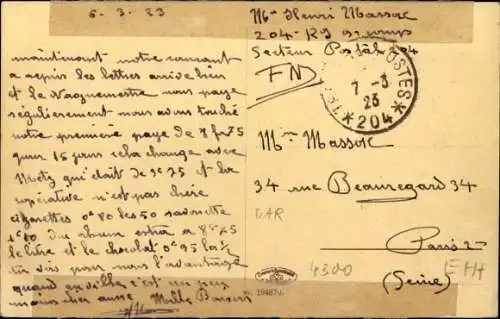 6.3.23
maintenant notre courant
a repris les lettres arrive bien
et le Vaguemestre nous paye
régulièrement nous avons touché
notre première paye de 8 fr 75
pour 15 jours cela change avec
Metz qui était de 3f 75 et la
coopérative n'est pas chère
cigarettes 0f 80 les 50 savonette
du rhum extra a 8f 75
le litre et le chocolat 0f 95 la 1/2
du vin pour nous l'avantage
quand en ville c'est un peu
moins cher aussi Mille Baisers
Mr Henri Massoc
204 - R I
Secteur Postal 204
FN
POSTES
7-3
23
* 204 *
Mme Massoc
34 rue Beauregard 34
VAR
Paris 2e
(Seine)
4300
EHH